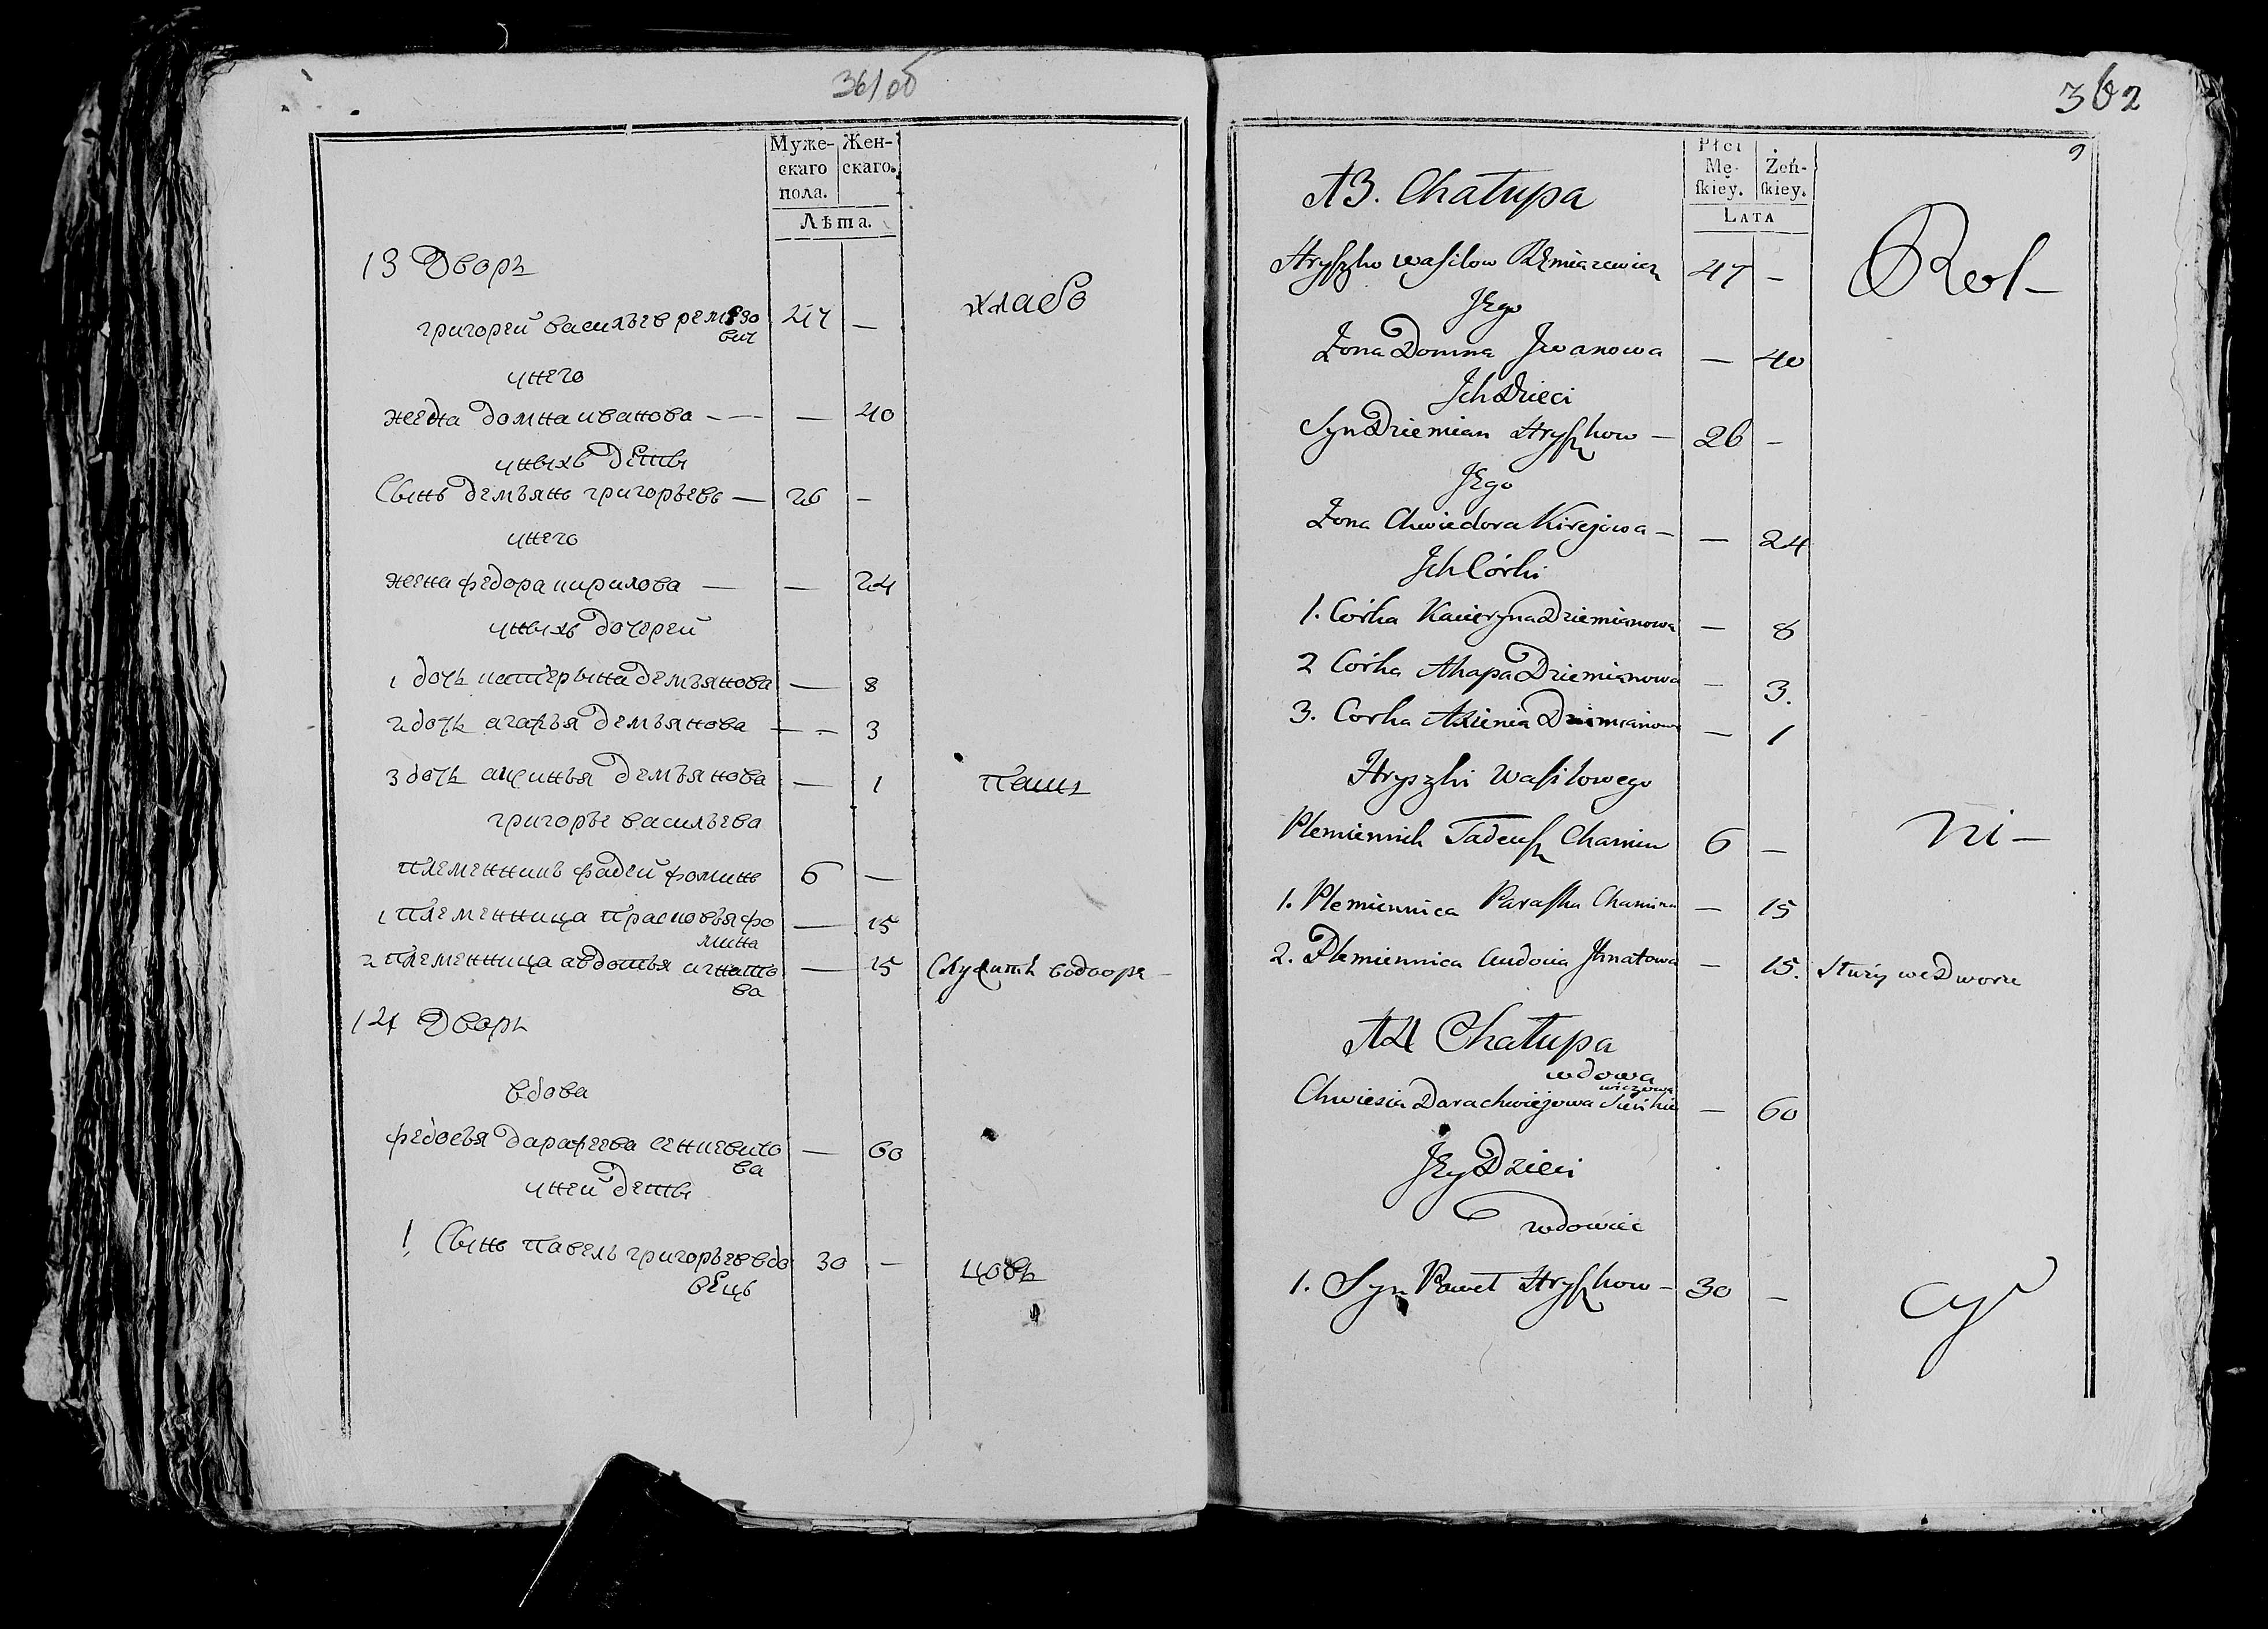 361 об
Муже-
скаго
пола.
Жен-
скаго.
Лѣта.
13 Дворъ
григорей васильев ремезо
вич 47 —
хлебо
унего
жена домна иванова — — 40
уныхъ дѣты
Сынъ демъянъ григорьевъ — 26 —
унего
жена федора кирилова — — 24
уныхъ дочерей
1 дочь катерына демъянова — 8
2 дочь агапья демъянова — — 3
3 дочь демъянова — 1
паш
григорье васильева
племенникъ фадей фоминъ 6 —
1 племенница прасковья фо
мина — 15
2 племенница авдотья игнато
ва — 15 Служить водворе —
14 Дворъ
вдова
федосья дарафеева сенкевичо
ва — 60
уней деты
1 Сынъ павелъ григорьев вдо
вѣцъ 30 —
цовъ
362
9
Płci
Mę-
skiey.
Żeń-
skiey.
LATA
13. Chałupa
Hryszko Wasilow Remiazewicz 47 —
Rol —
Jego
Żona Domna Jwanowa — 40
Jch Dzieci
Syn Dziemian Hryszkow — 26 —
Jego
Żona Chwiedora Kirejowa — — 24
Jch Córki
1. Córka Kacieryna Dziemianowa — 8
2 Córka Ahapa Dziemianowa — 3.
3. Corka Axienia Dziemianowa — 1
Hryszki Wasilowego
Plemiennik Tadeusz Chamin 6 —
ni —
1. Plemiennica Paraska Chamina — 15
2. Plemiennica Audocia Jhnatowa — 15. Służy we Dworze
14 Chałupa
wdowa
wiczowa
Chwiesia Darachwiejowa Sieńkie — 60
Jey Dzieci
wdowiec
1. Syn Paweł Hryszkow — 30 —
cy